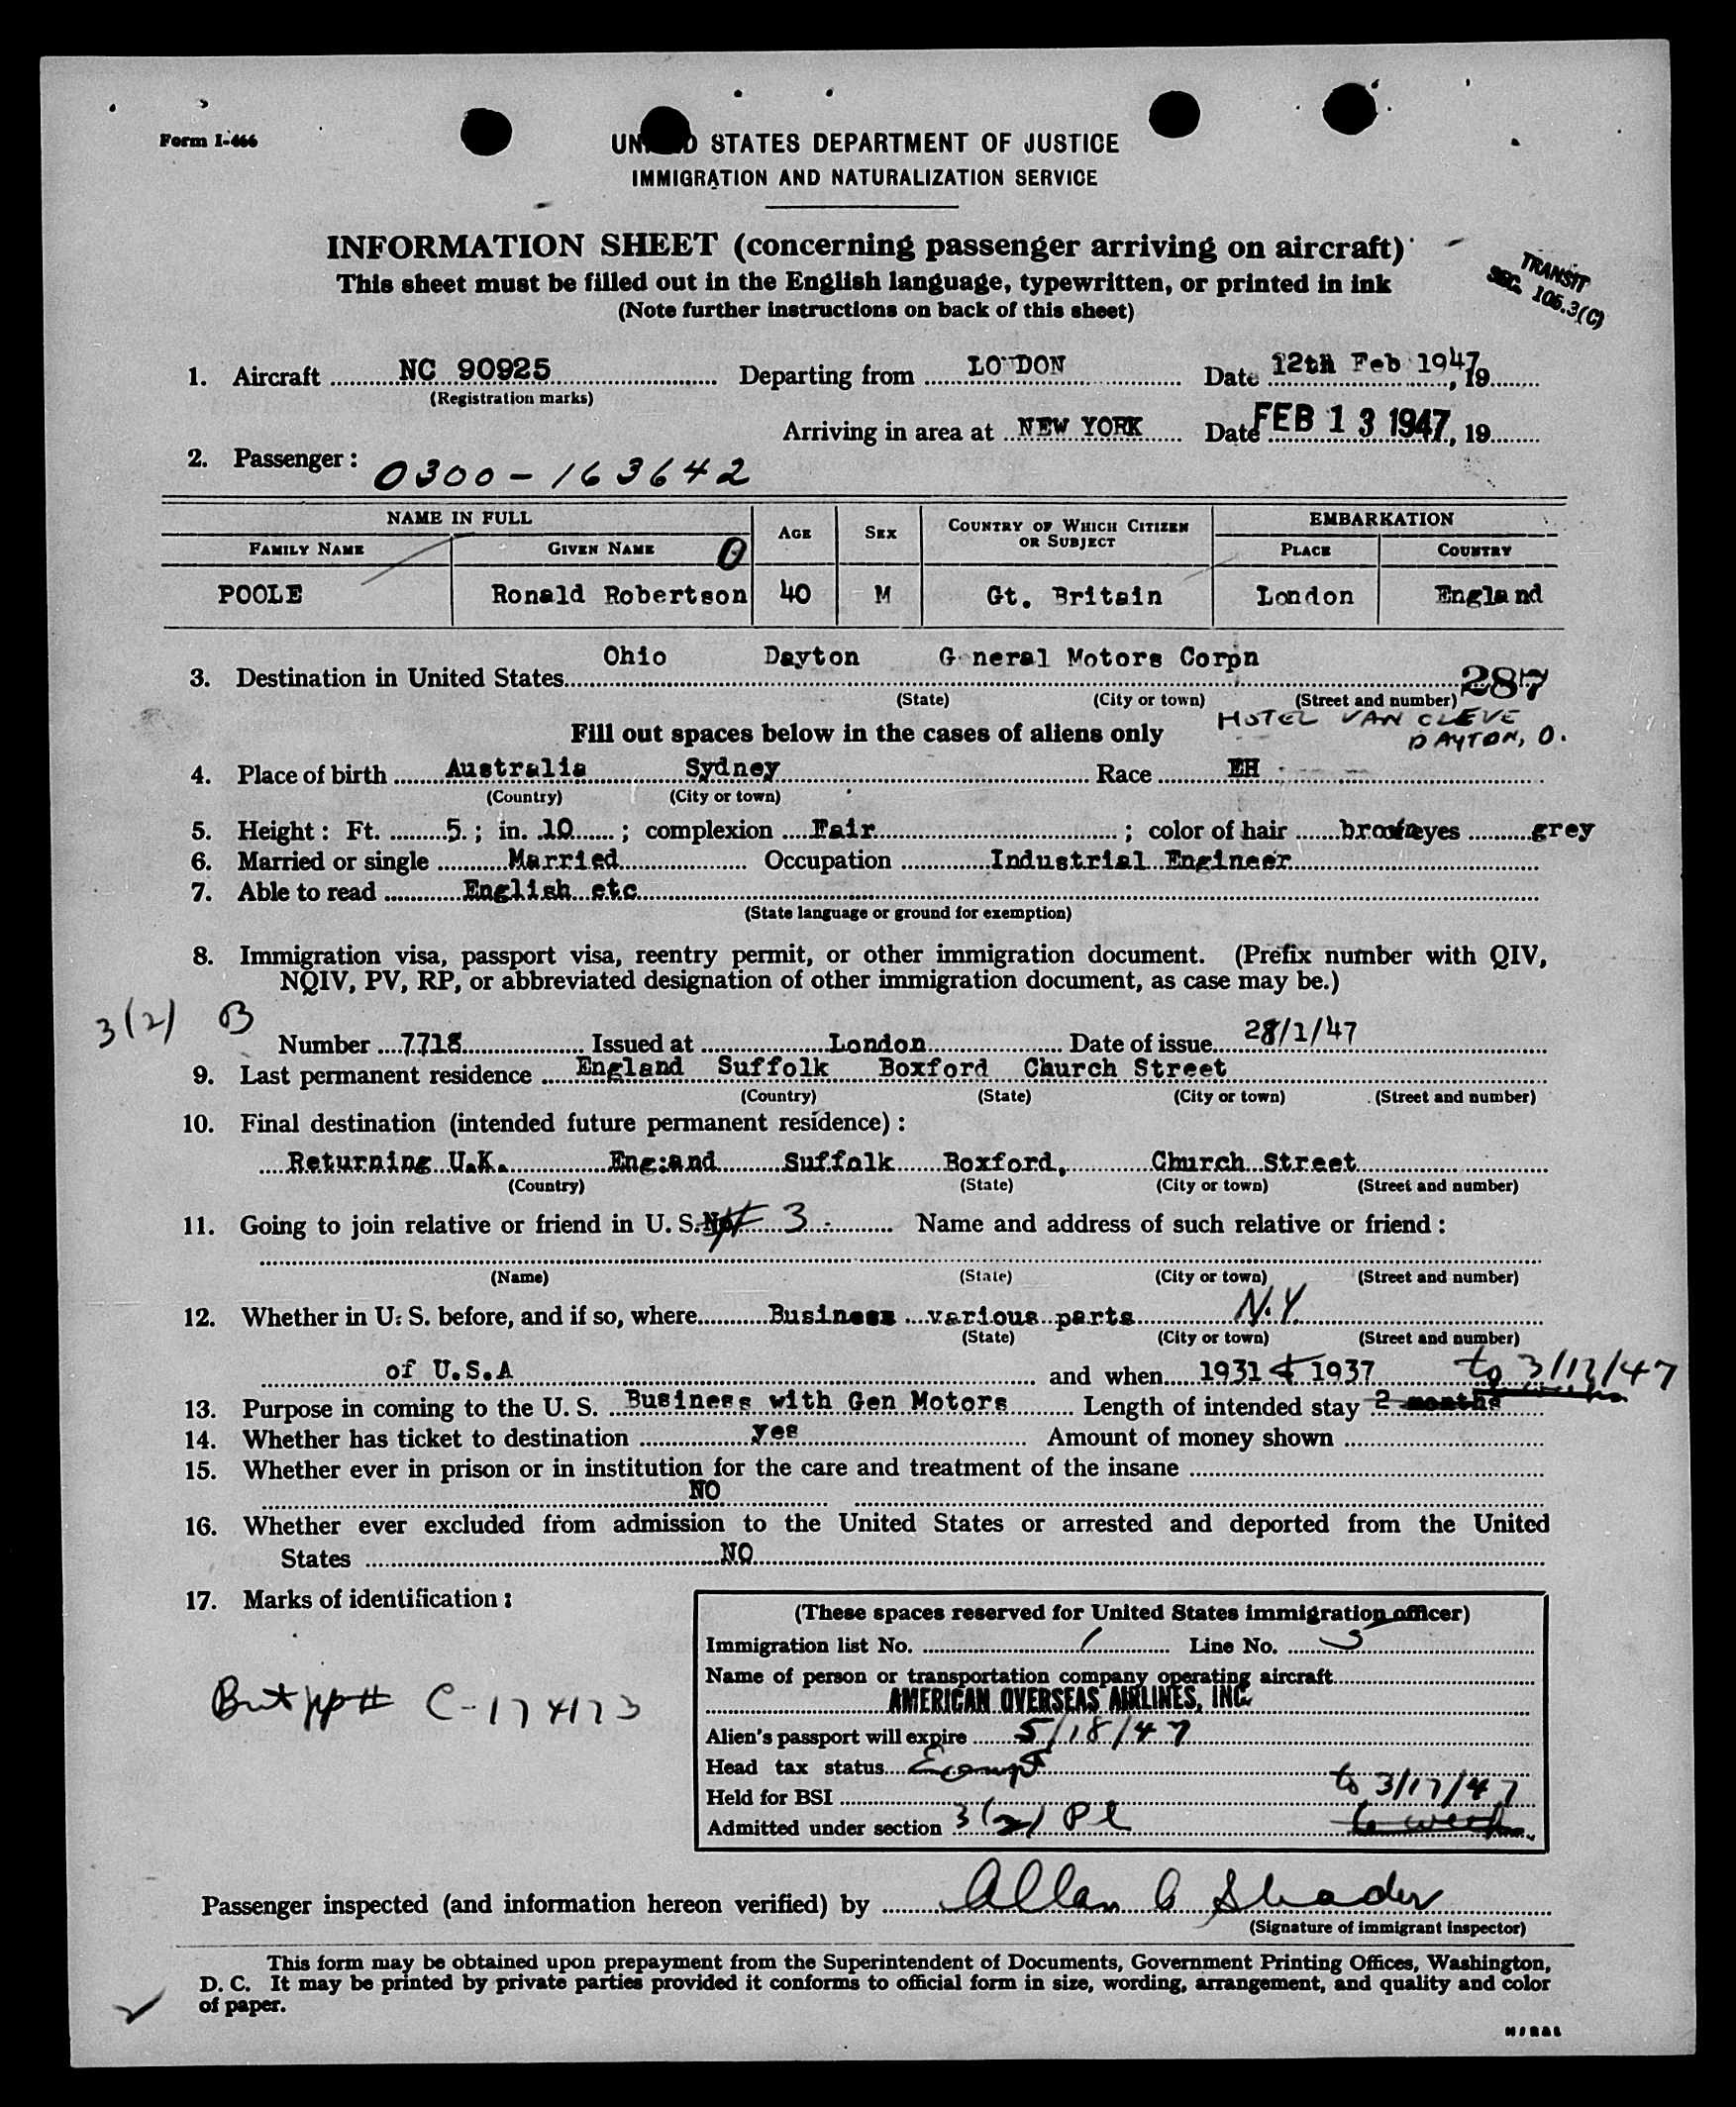 Form I-466
UNITED STATES DEPARTMENT OF JUSTICE
IMMIGRATION AND NATURALIZATION SERVICE
INFORMATION SHEET (concerning passenger arriving on aircraft)
This sheet must be filled out in the English language, typewritten, or printed in ink
(Note further instructions on back of this sheet)
TRANSIT
SEC. 105.3(C)
1. Aircraft NC 90925 Departing from LO DON Date 12th Feb 1947, 19
(Registration marks)
Arriving in area at NEW YORK Date FEB 13 1947, 19
2. Passenger: 0300-163642
NAME IN FULL AGE SEX COUNTRY OF WHICH CITIZEN OR SUBJECT EMBARKATION
FAMILY NAME GIVEN NAME PLACE COUNTRY
POOLE Ronald Robertson 40 M Gt. Britain London England
Ohio Dayton G neral Motors Corpn
3. Destination in United States 287
(State) (City or town) (Street and number)
HOTEL VAN CLEVE
DAYTON, O.
Fill out spaces below in the cases of aliens only
4. Place of birth Australia Sydney Race EH
(Country) (City or town)
5. Height: Ft. 5; in. 10; complexion Fair; color of hair brown eyes grey
6. Married or single Married Occupation Industrial Engineer
7. Able to read English etc
(State language or ground for exemption)
8. Immigration visa, passport visa, reentry permit, or other immigration document. (Prefix number with QIV,
NQIV, PV, RP, or abbreviated designation of other immigration document, as case may be.)
3(2) B
Number 7718 Issued at London Date of issue 28/1/47
9. Last permanent residence England Suffolk Boxford Church Street
(Country) (State) (City or town) (Street and number)
10. Final destination (intended future permanent residence):
Returning U.K. Eng:and Suffolk Boxford, Church Street
(Country) (State) (City or town) (Street and number)
11. Going to join relative or friend in U. S. # 3 Name and address of such relative or friend:
(Name) (State) (City or town) (Street and number)
12. Whether in U. S. before, and if so, where Business various parts N.Y.
(State) (City or town) (Street and number)
of U.S.A and when 1931 & 1937 to 3/17/47
13. Purpose in coming to the U. S. Business with Gen Motors Length of intended stay 2 months
14. Whether has ticket to destination yes Amount of money shown
15. Whether ever in prison or in institution for the care and treatment of the insane
NO
16. Whether ever excluded from admission to the United States or arrested and deported from the United
States NO
17. Marks of identification:
Brit pp# C-174173
(These spaces reserved for United States immigration officer)
Immigration list No. 1 Line No. 5
Name of person or transportation company operating aircraft
AMERICAN OVERSEAS AIRLINES, INC.
Alien's passport will expire 5/18/47
Head tax status Exempt
Held for BSI to 3/17/47
Admitted under section 3(2) Pl
Passenger inspected (and information hereon verified) by Allan C Shader
(Signature of immigrant inspector)
This form may be obtained upon prepayment from the Superintendent of Documents, Government Printing Offices, Washington,
D. C. It may be printed by private parties provided it conforms to official form in size, wording, arrangement, and quality and color
of paper.